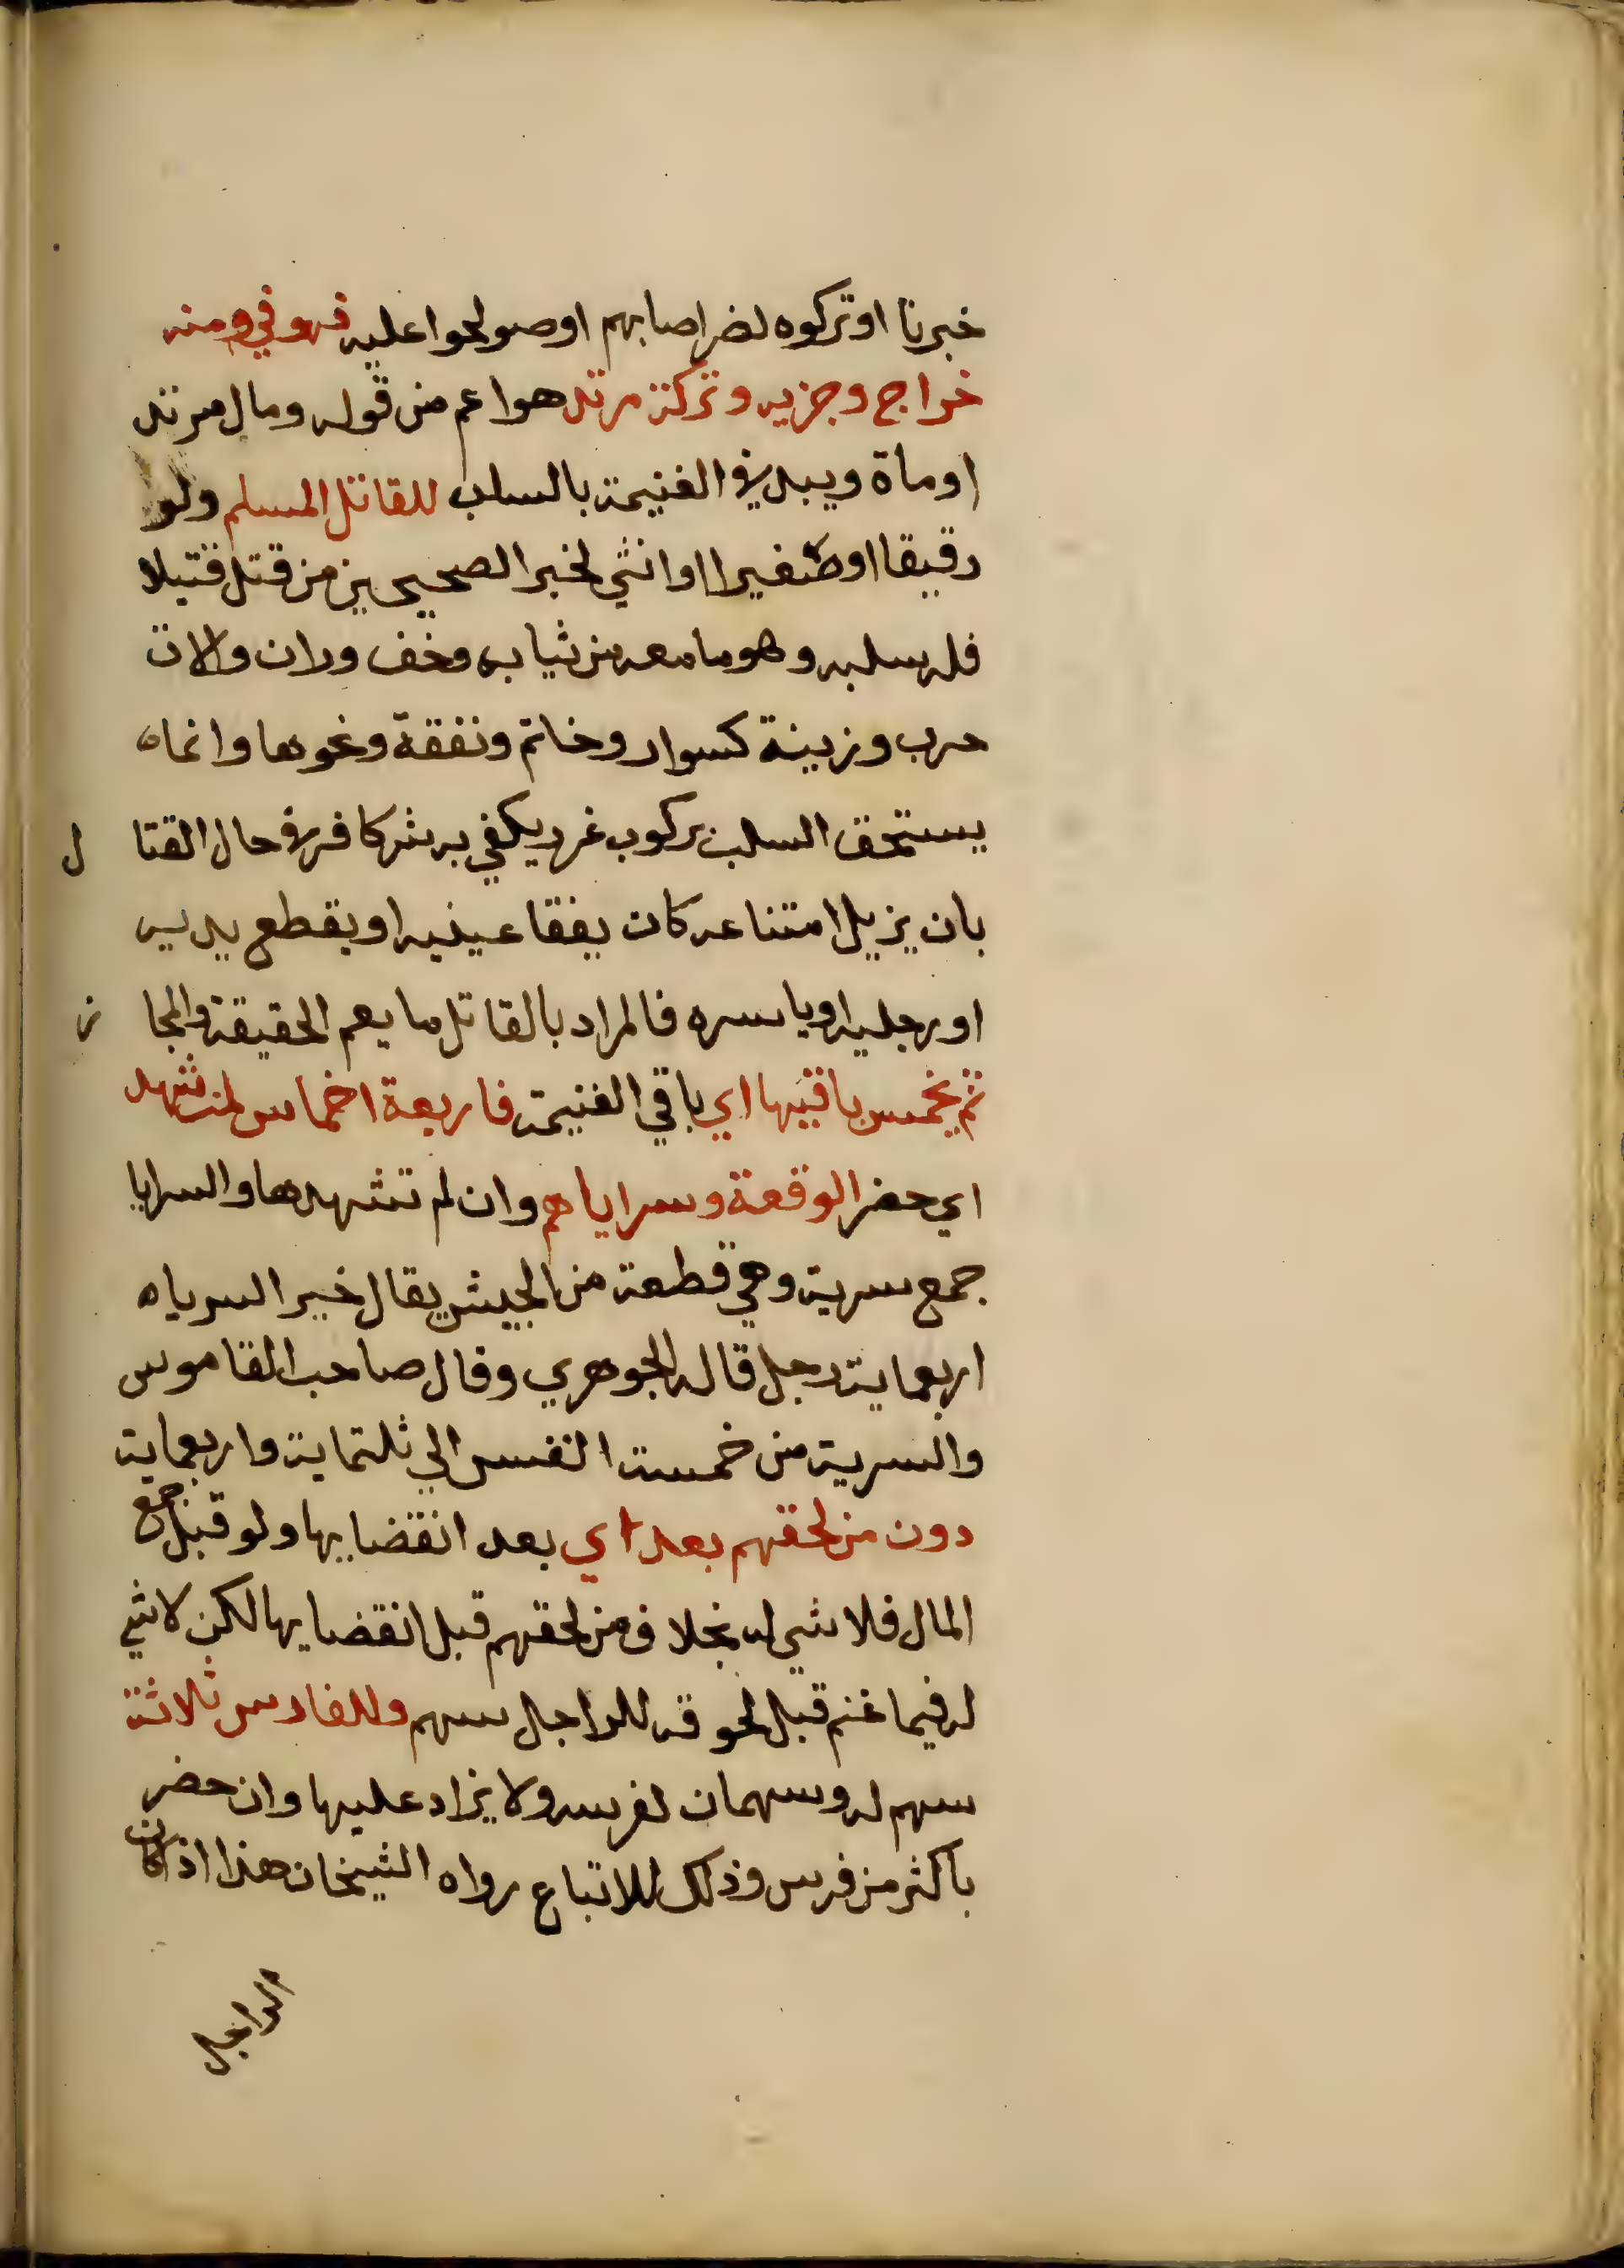 خبرنا او تركوه لضر اصابهم او صولحوا عليه فهو في ومنه
خراج وجزيه وتركة مرتد هو اعم من قوله ومال مرتد
او ماة ويبدا في الغنيمة بالسلب للقاتل المسلم ولو
رقيقا او صغيرا او انثي لخبر الصحيحين من قتل قتيلا
فله سلبه وهو ما معه من ثيابه وخف وران والات
حرب وزينة كسوار وخاتم ونفقة ونحوها وانما
يستحق السلب بركوب غرر يكفي به شر كافر في حال القتال
بان يزيل امتناعه كان يفقا عينيه او يقطع يديه
او رجليه او ياسره فالمراد بالقاتل ما يعم الحقيقة والمجاز
ثم يخمس باقيها اي باقي الغنيمة فاربعة اخماس لمن شهد
اي حضر الوقعة وسراياهم وان لم تشهدها والسرايا
جمع سرية وهي قطعة من الجيش يقال خير السرياه
اربعماية رجل قاله الجوهري وقال صاحب القاموس
والسرية من خمسة انفس الي ثلثماية واربعماية
دون من لحقهم بعد اي بعد انقضايها ولو قبل جمع
المال فلا شي له بخلاف من لحقهم قبل انقضايها لكن لا شي
له فيما غنم قبل لحوقه للراجل سهم وللفارس ثلاثة
سهم له وسهمان لفرسه ولا يزاد عليها وان حضر
باكثر من فرس وذلك للاتباع رواه الشيخان هذا اذا كان
الراجل